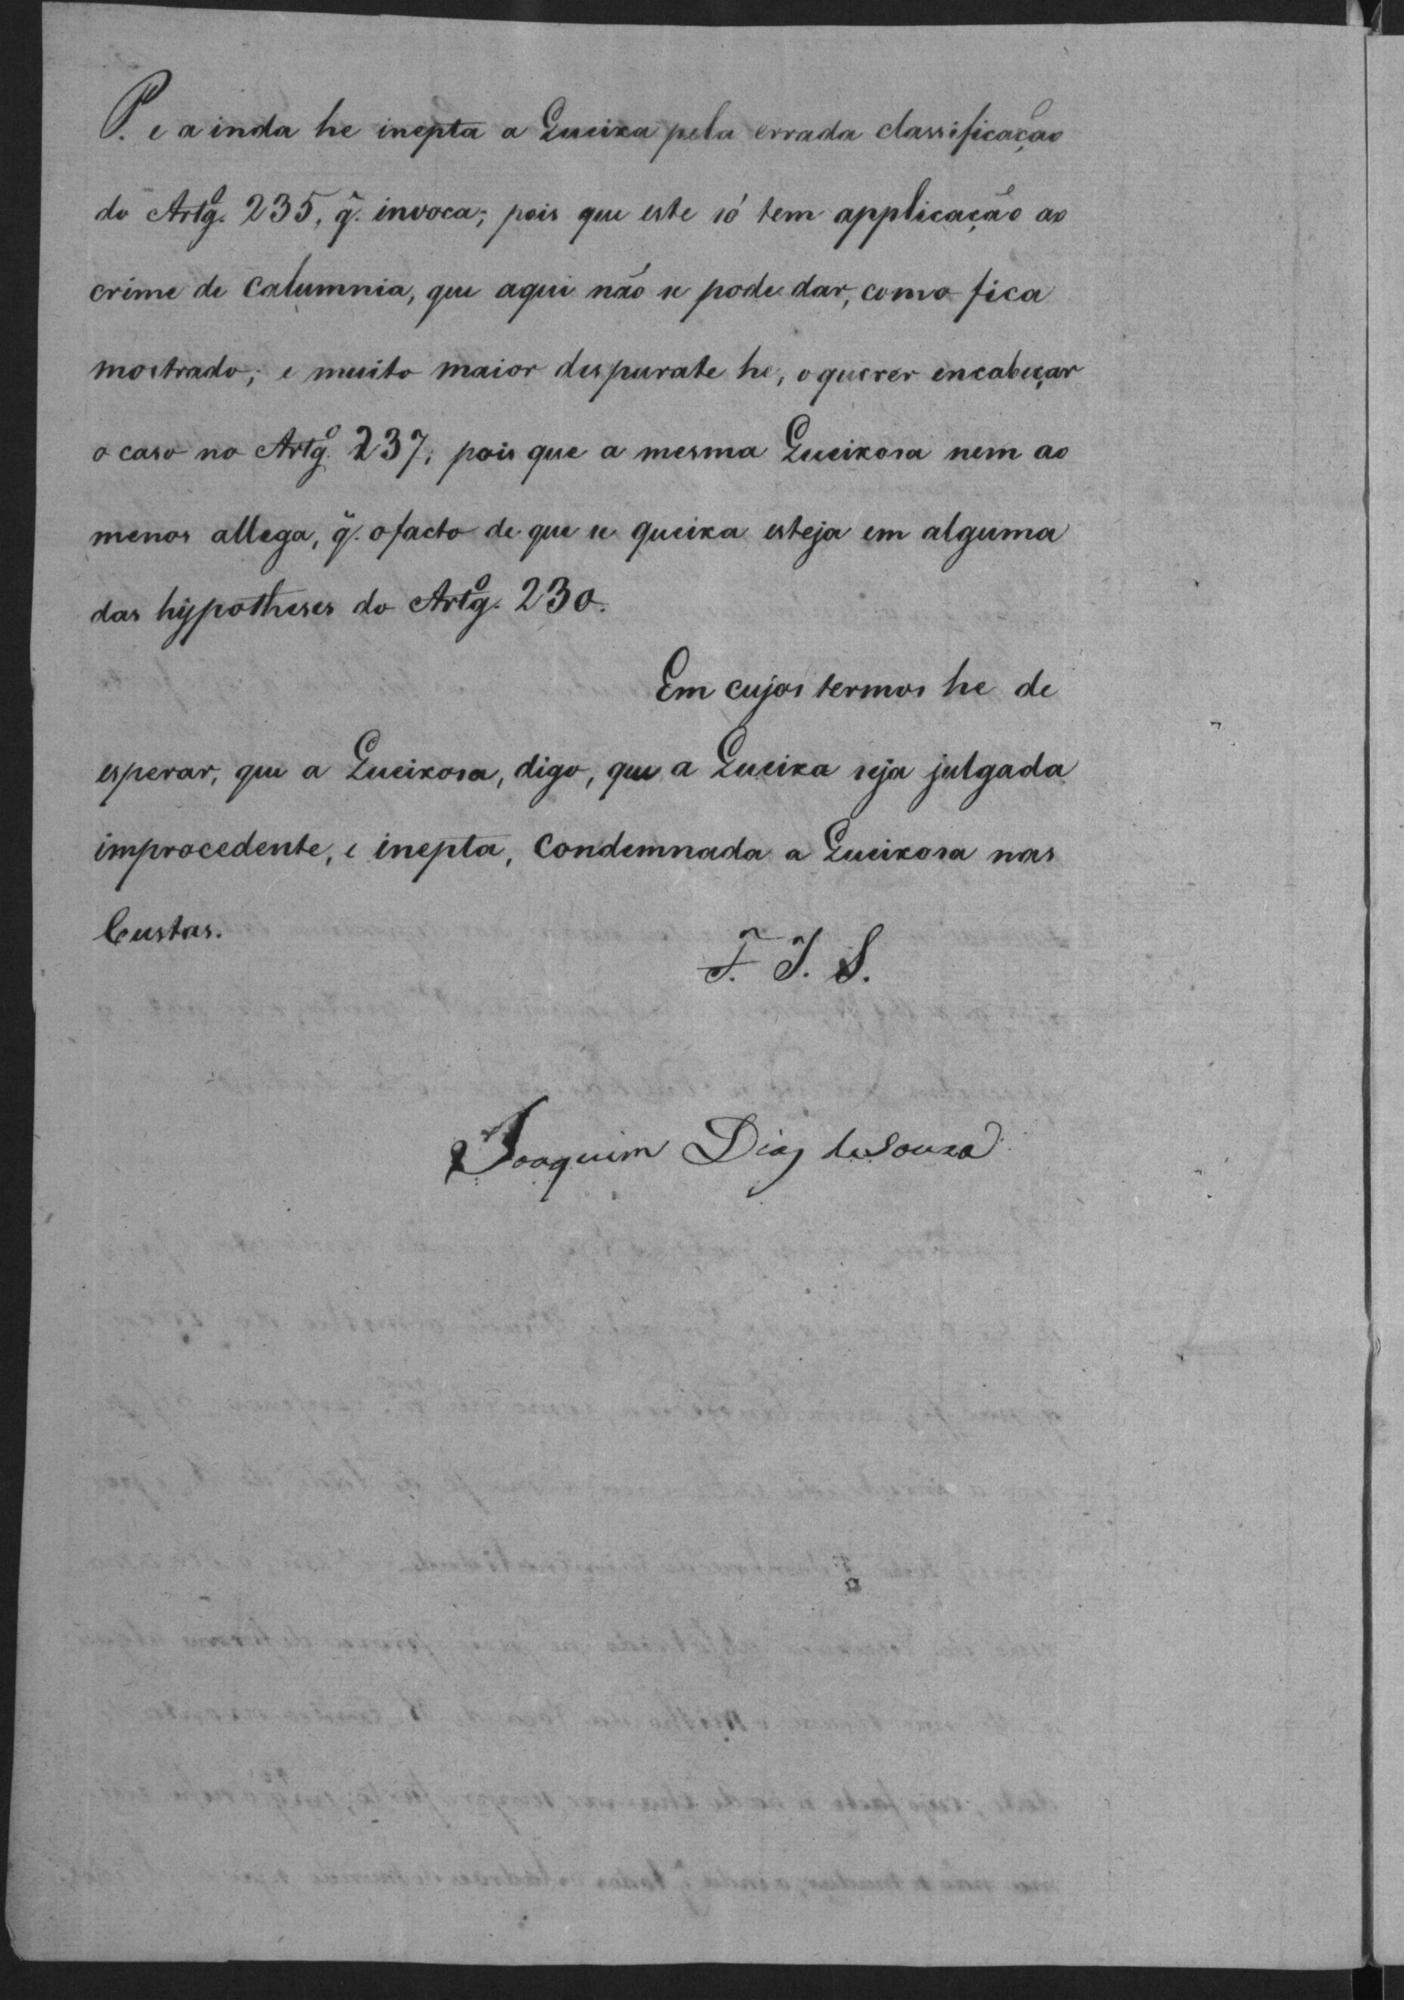 P. e ainda he inepta a Queixa pela errada classificação
do Artgº. 235, q̃. invoca; pois que este só tem applicação ao
crime de calumnia, que aqui não se pode dar, como fica
mostrado; e muito maior desparate he, o querer encabeçar
o caso no Artgº. 237, pois que a mesma Queixosa nem ao
menos allega, q̃. o facto de que se queixa esteja em alguma
das hypotheses do Artgº. 230.
Em cujos termos he de
esperar, que a Queixosa, digo, que a Queixa seja julgada
improcedente, e inepta, condemnada a Queixosa nas
Custas.
F. J. S.
Joaquim Dias de Souza